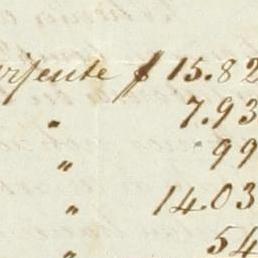 arpente $ 15.82
" 7.93
" 99
" 14.03
" 54